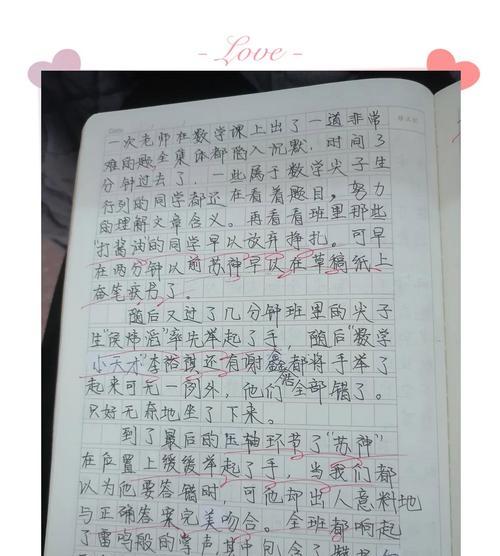 - Love -
一次老师在数学课上出了一道非常
难的题全集体都陷入沉默,时间3
分钟过去了,一些属于数学尖子生
行列的同学都还在看着题目,努力
的理解文章含义。再看看班里那些
"打酱油的同学早以放弃挣扎。可早
在两分钟以前苏神早以在草稿纸上
奋笔疾书了。
随后又过了几分钟班里的尖子
生"侯炜滔"率先举起了手,随后"数学
小天才"李裕祺还有谢鑫都将手举了
浩
起来可无一例外,他们全部错了。
只好无奈地坐了下来。
到了最后的压轴环节了"苏神"
在位置上缓缓举起了手,当我们都
以为他要答错时,可他却出人意料地
与正确答案完美吻合。全班都响起
了雷鸣般的掌声,其中包含了